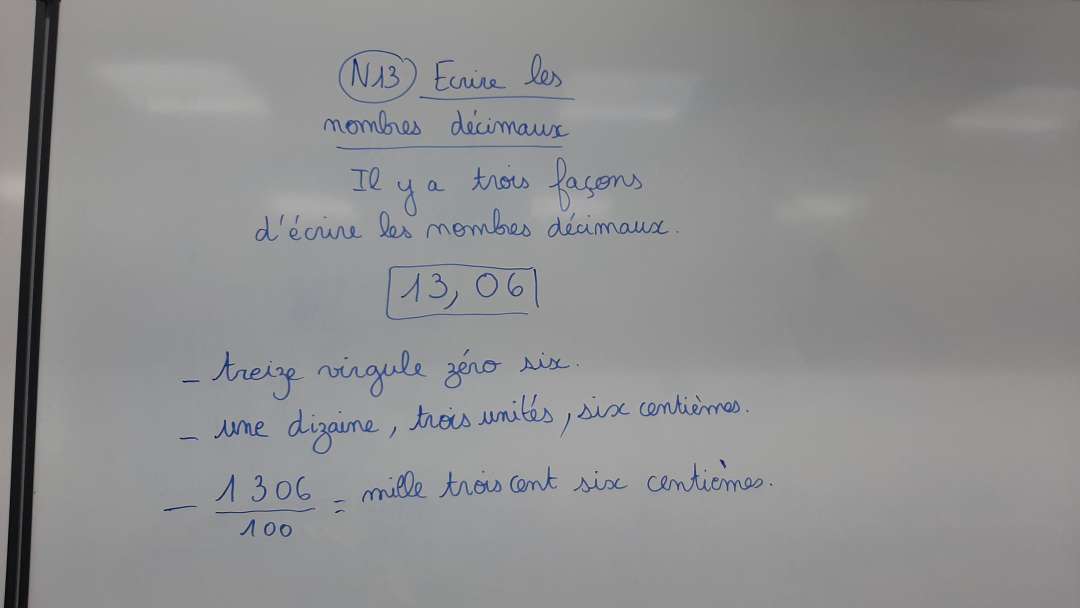 N13 Ecrire les
nombres décimaux
Il y a trois façons
d'écrire les nombres décimaux.
13,06
- treize virgule zéro six.
- une dizaine, trois unités, six centièmes.
- 1306/100 = mille trois cent six centièmes.